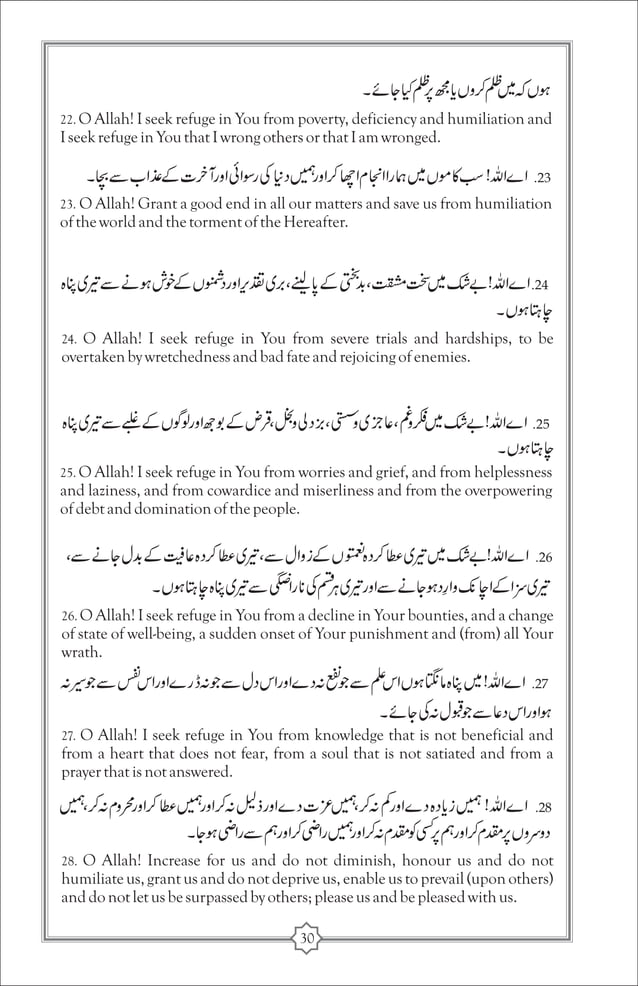 ہوں کہ میں ظلم کروں یا مجھ پر ظلم کیا جائے۔
22. O Allah! I seek refuge in You from poverty, deficiency and humiliation and
I seek refuge in You that I wrong others or that I am wronged.
23. اے اللہ! سب کاموں میں ہمارا انجام اچھا کر اور ہمیں دنیا کی رسوائی اور آخرت کے عذاب سے بچا۔
23. O Allah! Grant a good end in all our matters and save us from humiliation
of the world and the torment of the Hereafter.
24. اے اللہ! بے شک میں سخت مشقت، بدبختی کے پا لینے، بری تقدیر اور دشمنوں کے خوش ہونے سے تیری پناہ
چاہتا ہوں۔
24. O Allah! I seek refuge in You from severe trials and hardships, to be
overtaken by wretchedness and bad fate and rejoicing of enemies.
25. اے اللہ! بے شک میں فکر و غم، عاجزی و سستی، بزدلی و بخل، قرض کے بوجھ اور لوگوں کے غلبے سے تیری پناہ
چاہتا ہوں۔
25. O Allah! I seek refuge in You from worries and grief, and from helplessness
and laziness, and from cowardice and miserliness and from the overpowering
of debt and domination of the people.
26. اے اللہ! بے شک میں تیری عطا کردہ نعمتوں کے زوال سے، تیری عطا کردہ عافیت کے بدل جانے سے،
تیری سزا کے اچانک وارد ہو جانے سے اور تیری ہر قسم کی ناراضگی سے تیری پناہ چاہتا ہوں۔
26. O Allah! I seek refuge in You from a decline in Your bounties, and a change
of state of well-being, a sudden onset of Your punishment and (from) all Your
wrath.
27. اے اللہ! میں پناہ مانگتا ہوں اس علم سے جو نفع نہ دے اور اس دل سے جو نہ ڈرے اور اس نفس سے جو سیر نہ
ہو اور اس دعا سے جو قبول نہ کی جائے۔
27. O Allah! I seek refuge in You from knowledge that is not beneficial and
from a heart that does not fear, from a soul that is not satiated and from a
prayer that is not answered.
28. اے اللہ! ہمیں زیادہ دے اور کم نہ کر، ہمیں عزت دے اور ذلیل نہ کر اور ہمیں عطا کر اور محروم نہ کر، ہمیں
دوسروں پر مقدم کر اور ہم پر کسی کو مقدم نہ کر اور ہمیں راضی کر اور ہم سے راضی ہو جا۔
28. O Allah! Increase for us and do not diminish, honour us and do not
humiliate us, grant us and do not deprive us, enable us to prevail (upon others)
and do not let us be surpassed by others; please us and be pleased with us.
30